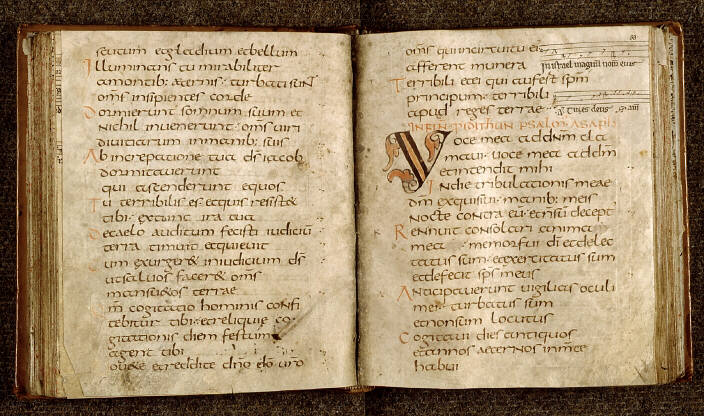 scutum et gladium et bellum
Illuminans tu mirabiliter
a montib: aeternis turbati sunt
om̅s insipientes corde
Dormierunt somnum suum et
nichil invenerunt om̅s viri
divitiarum in manib: suis
Ab increpatione tua d̅s iacob
dormitaverunt
qui ascenderunt equos
Tu terribilis es et quis resist&
tibi extunc ira tua
De caelo auditum fecisti iudiciu̅
terra timuit et quievit
cum exurger& in iudicium d̅s
ut salvos facer& om̅s
mansu&os terrae
cogitatio hominis confi
tebitur tibi et reliquie co
gitationis diem festum
agent tibi
et reddite dn̅o d̅o v̅ro
om̅s qui in circuitu ei
afferent munera
Terribili et ei qui aufert sp̅m
principum terribili
apud reges terrae
In israel magnu̅ nom̅ eius
PSALM ASAPH
Voce mea ad dn̅m cla
mavi voce mea ad d̅m
et intendit mihi
In die tribulationis meae
d̅m exquisivi manib: meis
nocte contra eu̅ et n̅ su̅ decept
Rennuit consolari anima
mea memor fui d̅i et delec
tatus sum et exercitatus sum
et defecit sp̅s meus
Anticipaverunt vigilias oculi
mei turbatus sum
et non sum locutus
Cogitavi dies antiquos
et annos aeternos in m̅te
habui